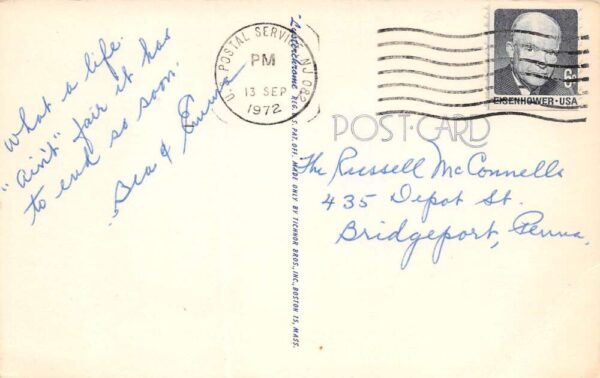 What a life.
"ain't" fair it has
to end so soon.
Bea & Emma
U. S. POSTAL SERVICE NJ 082
PM
13 SEP
1972
6¢
EISENHOWER·USA
POST CARD
"Lusterchrome" REG. U.S. PAT. OFF. MADE ONLY BY TICHNOR BROS., INC., BOSTON 15, MASS.
The Russell McConnells
435 Depot St.
Bridgeport, Penna.